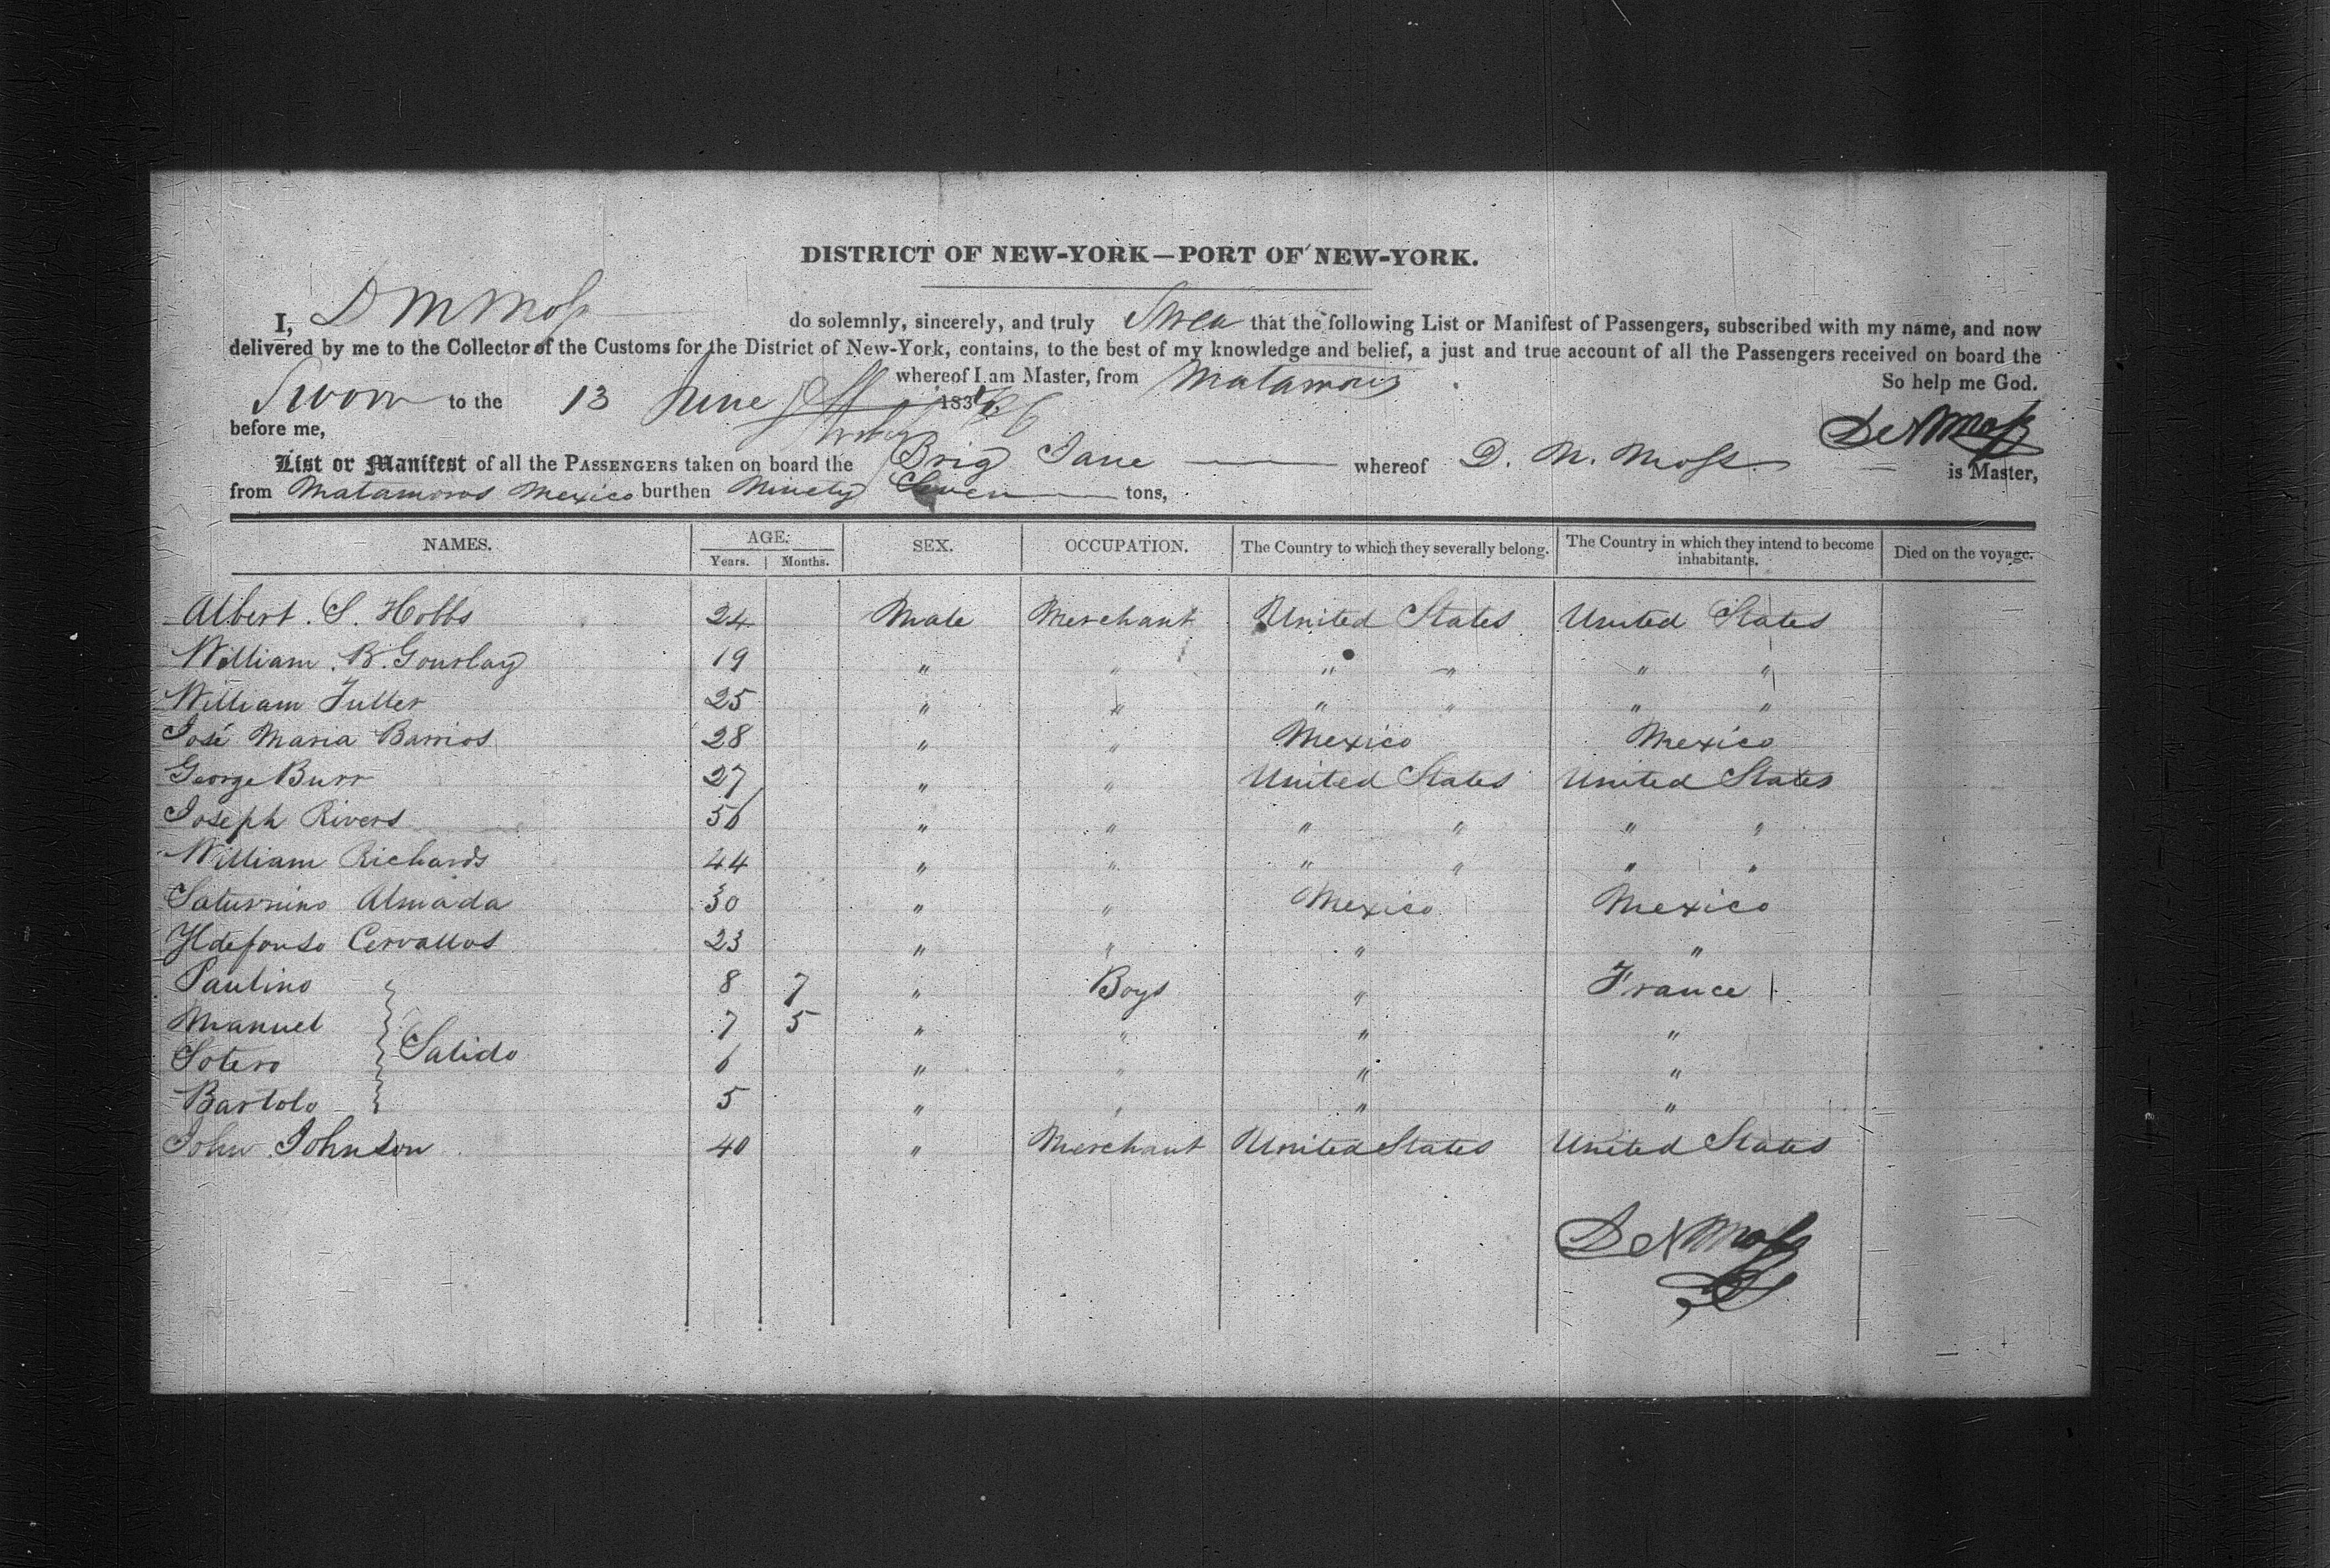 DISTRICT OF NEW-YORK—PORT OF NEW-YORK.
I, D M Moss do solemnly, sincerely, and truly Swea that the following List or Manifest of Passengers, subscribed with my name, and now
delivered by me to the Collector of the Customs for the District of New-York, contains, to the best of my knowledge and belief, a just and true account of all the Passengers received on board the
whereof I am Master, from Matamoros So help me God.
Sworn to the 13 June 183
before me,
List or Manifest of all the PASSENGERS taken on board the Brig Jane whereof D. N. Moss is Master,
from Matamoros Mexico burthen Ninety Seven tons,
NAMES. AGE. SEX. OCCUPATION. The Country to which they severally belong. The Country in which they intend to become inhabitants. Died on the voyage.
Years. Months.
Albert. S. Hobbs 24 Male Merchant United States United States
William. B. Gourlay 19 " " " " " "
William Fuller 25 " " " " " "
José Maria Barrios 28 " " Mexico Mexico
George Burr 27 " " United States United States
Joseph Rivers 56 " " " " " "
William Richards 44 " " " " " "
Saturnino Almada 30 " " Mexico Mexico
Yldefonso Cervallos 23 " " " "
Paulino 8 7 " Boys " France
Manuel 7 5 " " " "
Salido
Sotero 6 " " " "
Bartolo 5 " " " "
John Johnson 40 " Merchant United States United States
D N Moss